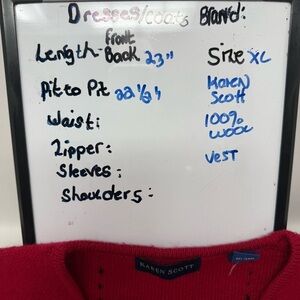 Dresses/coats Brand:
Front
Length- Back 23" Size XL
Pit to Pit 22 1/2" Karen
Scott
Waist: 100%
wool
Zipper: Vest
Sleeves:
Shoulders:
KAREN SCOTT